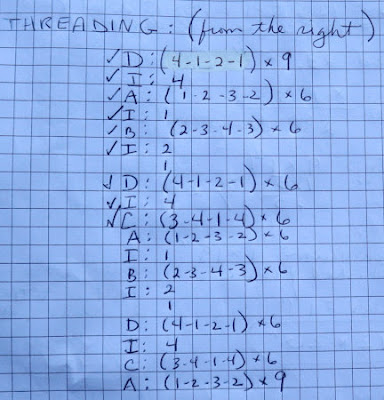 THREADING: (from the right)
✓ D: (4-1-2-1) × 9
✓ I: 4
✓ A: (1-2-3-2) × 6
✓ I: 1
✓ B: (2-3-4-3) × 6
✓ I: 2
1
✓ D: (4-1-2-1) × 6
✓ I: 4
✓ C: (3-4-1-4) × 6
A: (1-2-3-2) × 6
I: 1
B: (2-3-4-3) × 6
I: 2
1
D: (4-1-2-1) × 6
I: 4
C: (3-4-1-4) × 6
A: (1-2-3-2) × 9